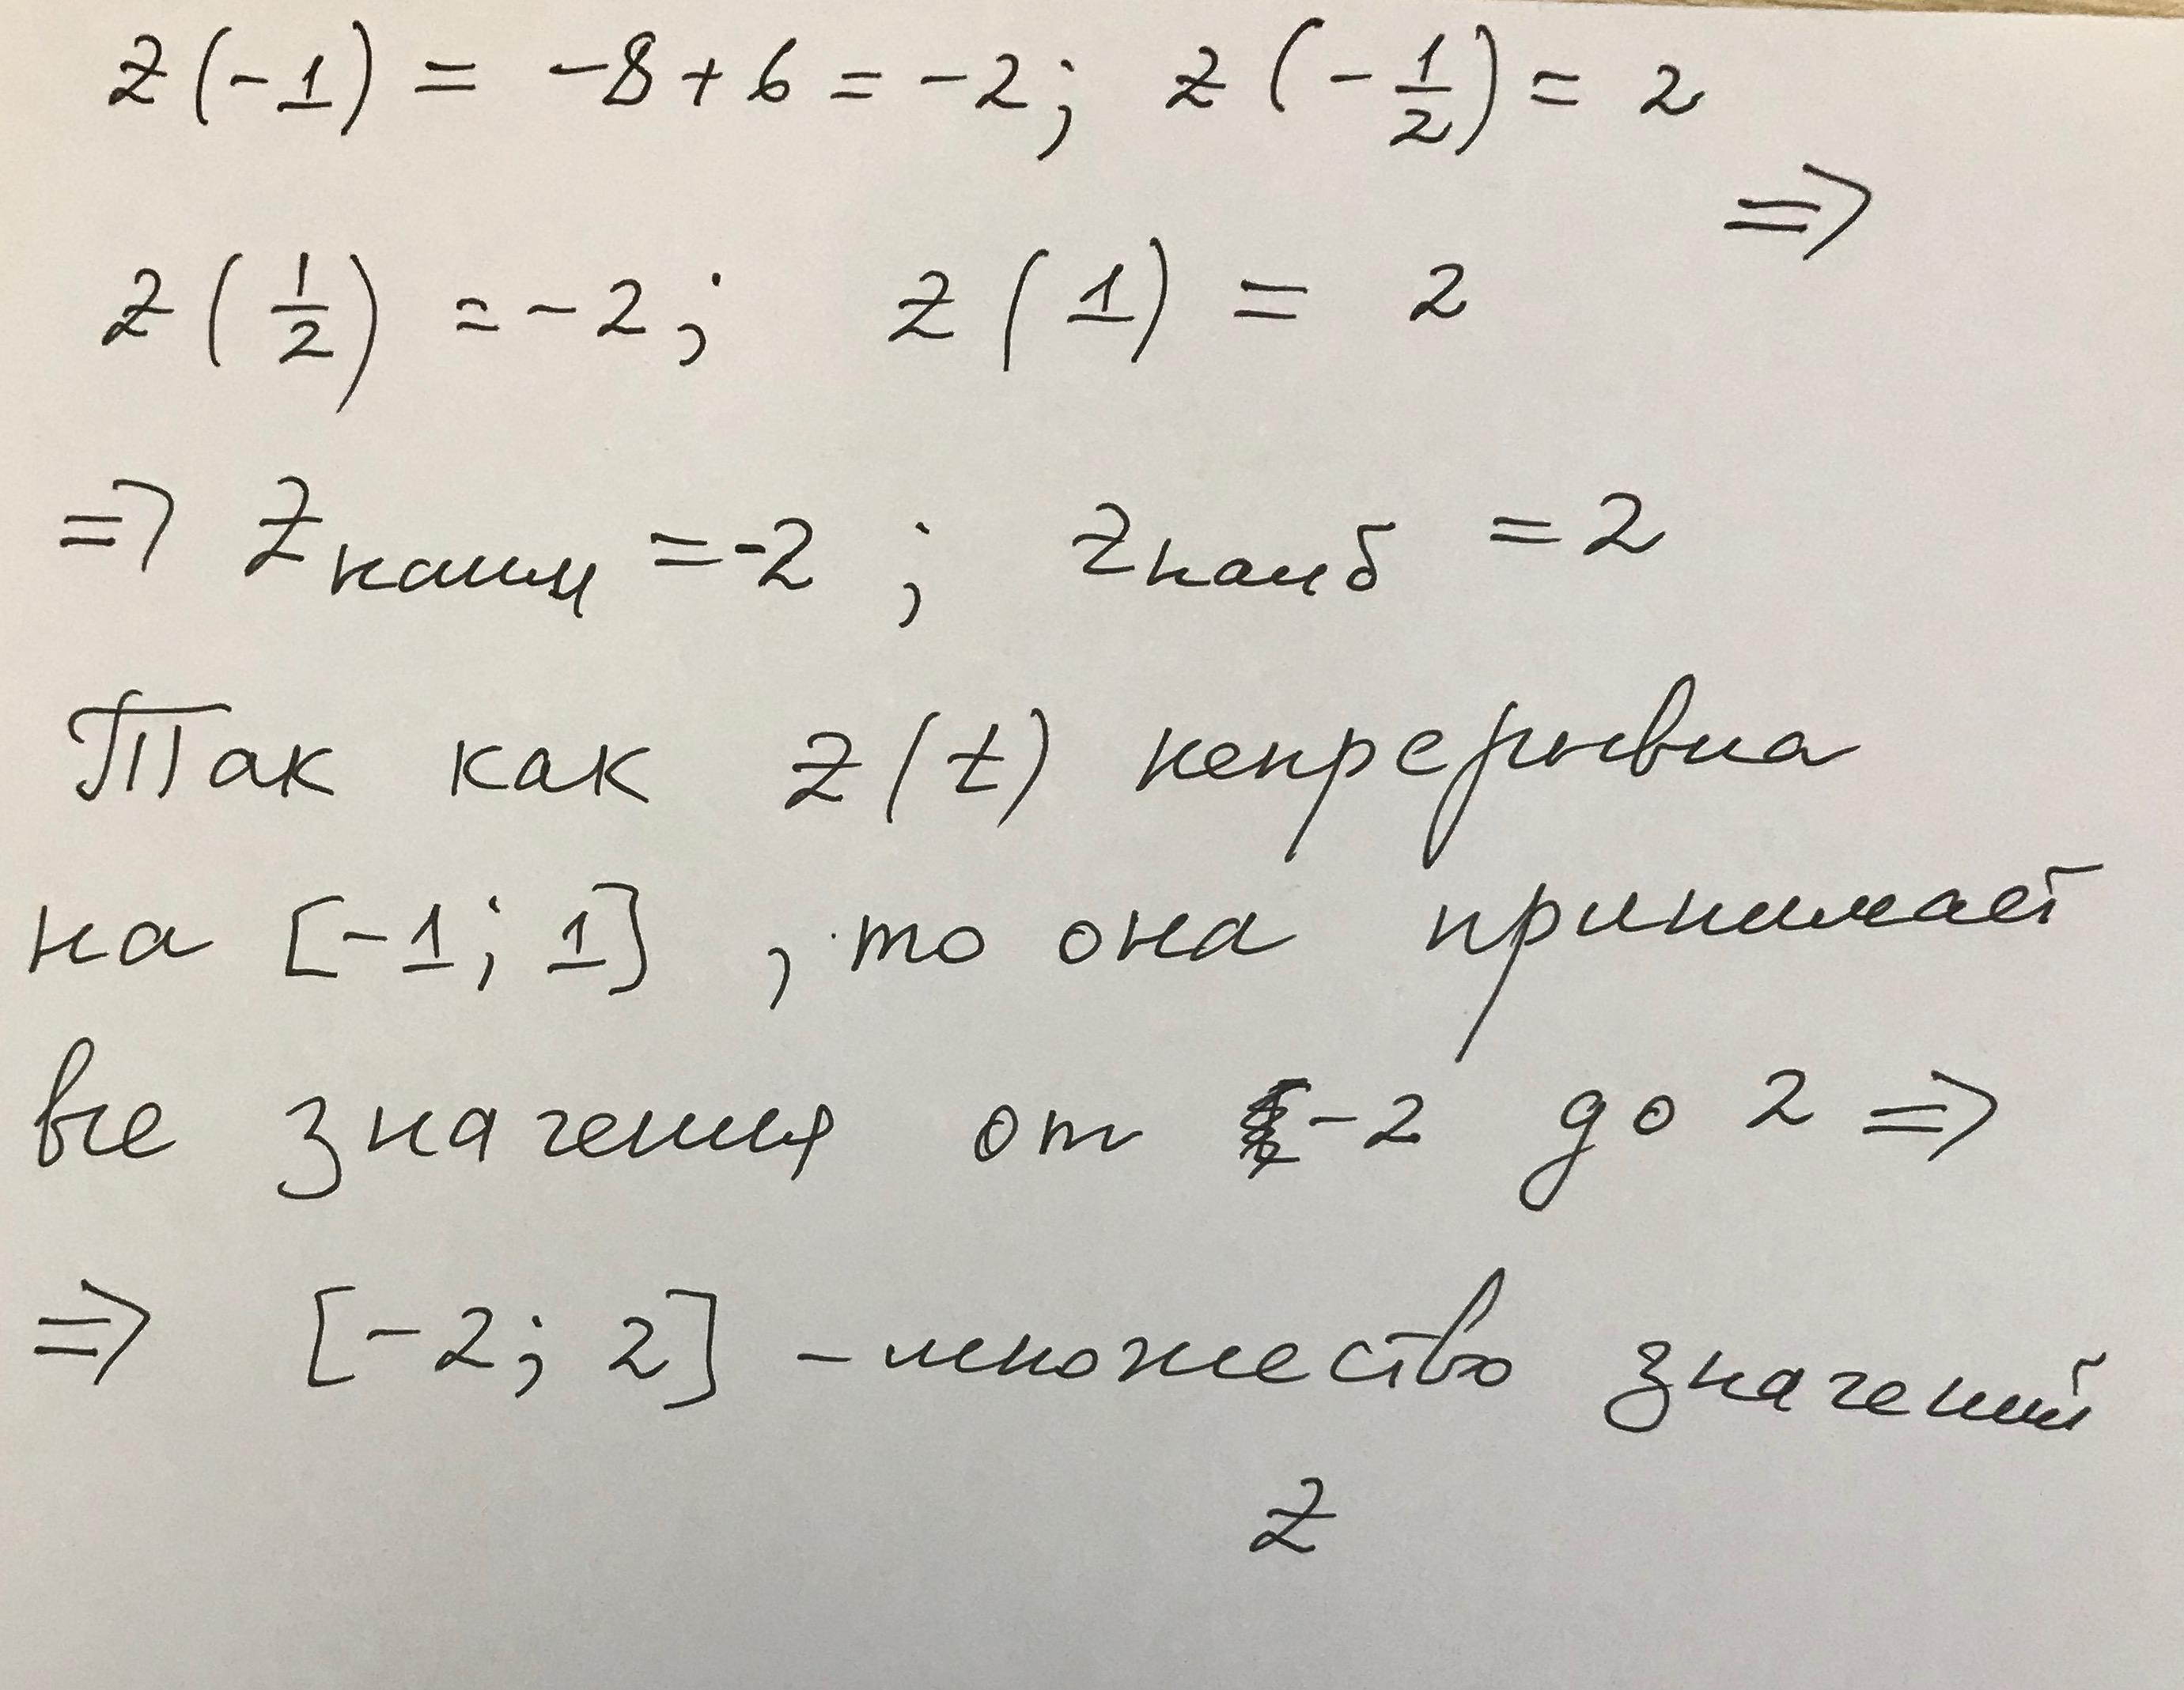 z(-1) = -8+6 = -2; z(-1/2) = 2
=>
z(1/2) = -2; z(1) = 2
=> z наим = -2 ; z наиб = 2
Так как z(t) непрерывна
на [-1; 1] , то она принимает
все значения от -2 до 2 =>
=> [-2; 2] - множество значений
z